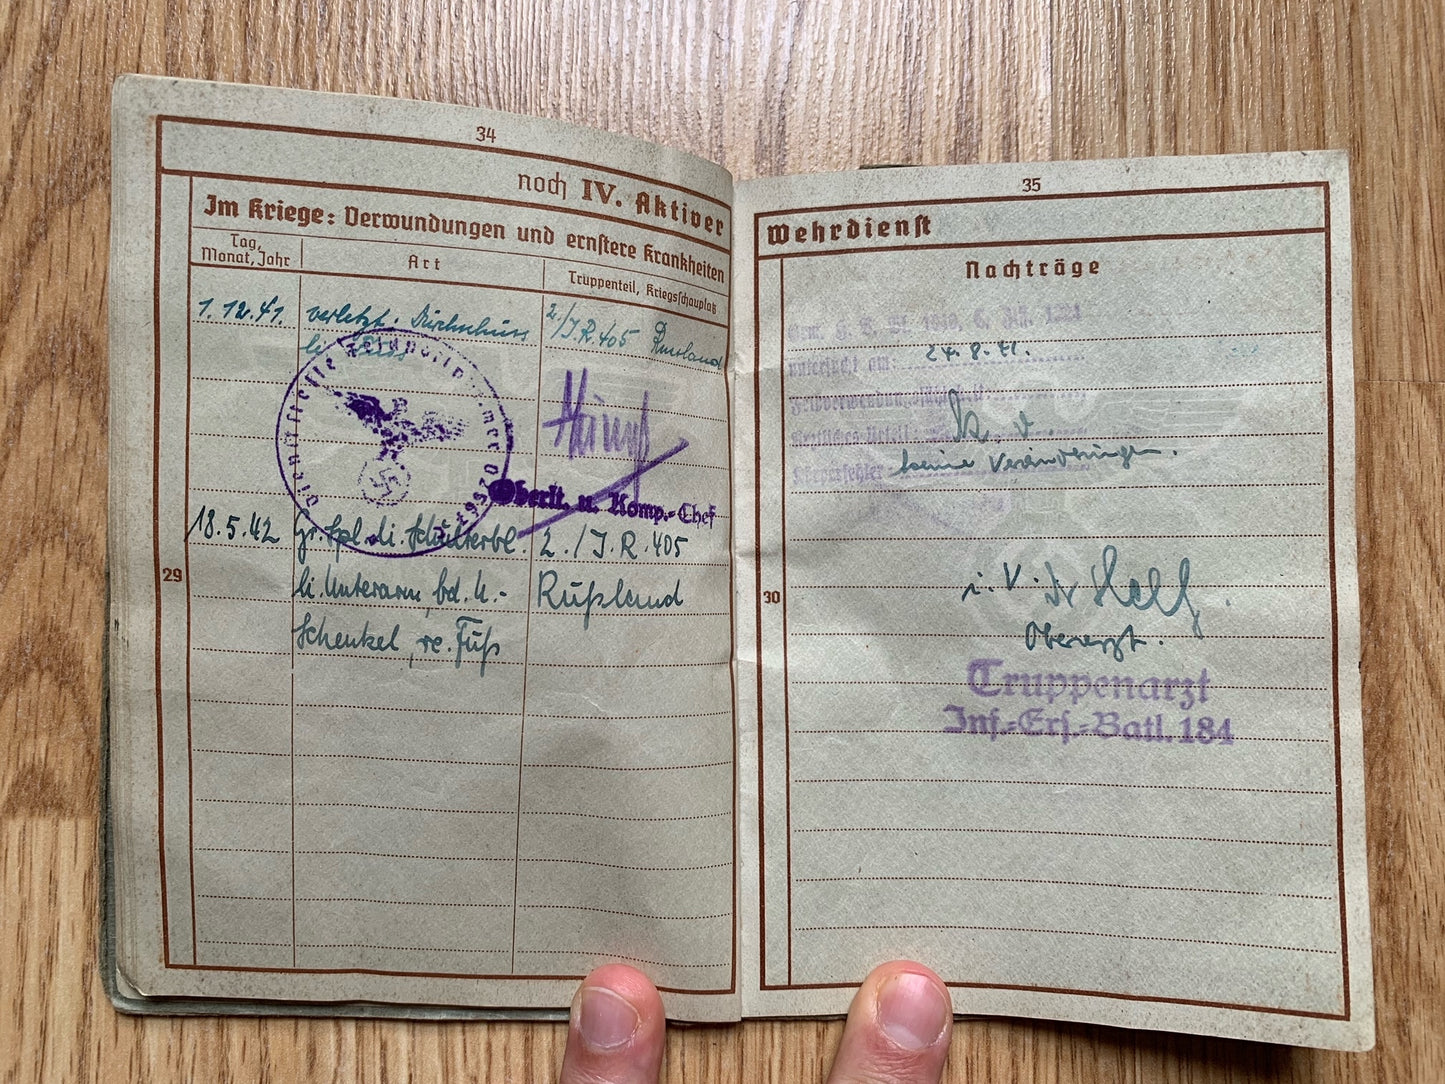 34
noch IV. Aktiver
Im Kriege: Verwundungen und ernstere Krankheiten
Tag, Monat, Jahr
Art
Truppenteil, Kriegsschauplatz
1.12.41. verletzt. Durchschuss 2./J.R. 405 Russland
li.
Dienststelle Feldpostnummer
Oberlt. u. Komp.-Chef
18.5.42 Gr. Spl. li. Schulterbl. 2./J.R. 405
li. Unterarm, bd. U.- Rußland
Schenkel, re. Fuß
29
35
Wehrdienst
Nachträge
untersucht am: 24.8.41.
Feldverwendungsfähigkeit:
Ärztliches Urteil: k. v.
Körperfehler keine Veränderungen.
30
i. V. Dr
Oberarzt.
Truppenarzt
Inf.-Ers.-Batl. 184